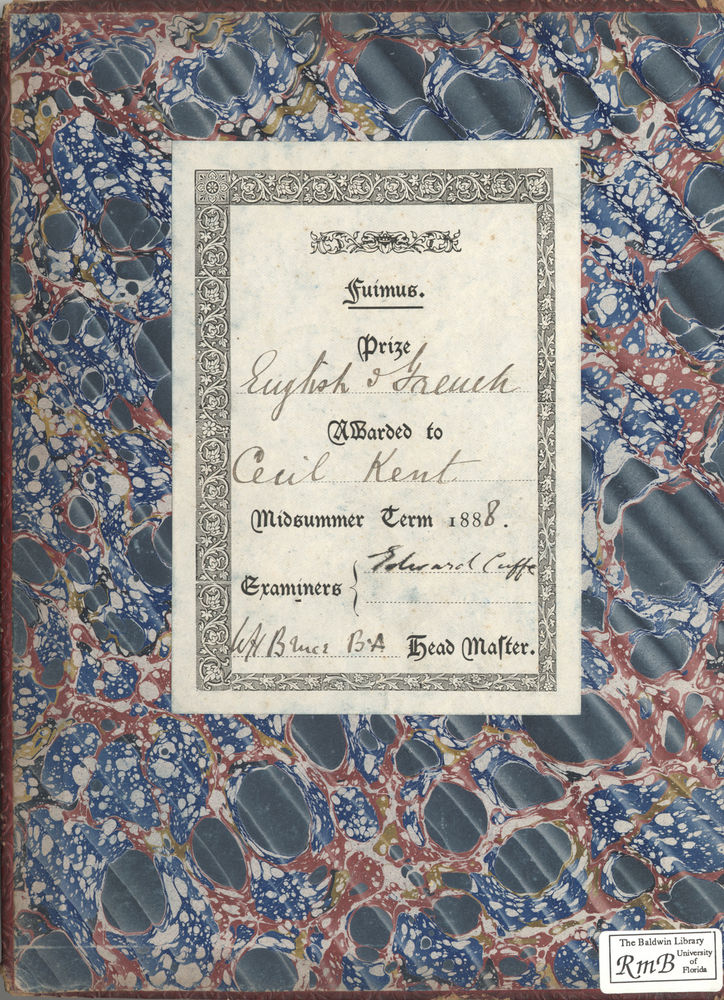 Fuimus.
Prize
English & French
Awarded to
Cecil Kent.
Midsummer Term 1888.
Edward Cuffe
Examiners
W H Bruce BA Head Master.
The Baldwin Library
RmB University
of
Florida